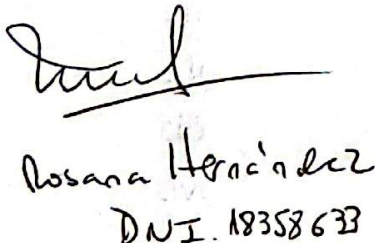 Rosana Hernández
DNI. 18358633